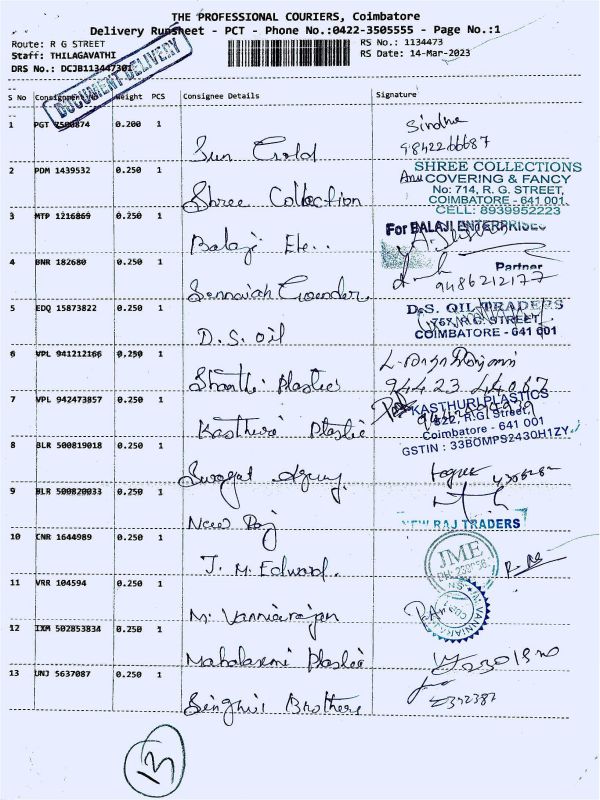 THE PROFESSIONAL COURIERS, Coimbatore
Delivery Runsheet - PCT - Phone No.:0422-3505555 - Page No.:1
Route: R G STREET
RS No.: 1134473
Staff: THILAGAVATHI
RS Date: 14-Mar-2023
DRS No.: DCJB113447301
DOCUMENT DELIVERY
S No Consignment No Weight PCS Consignee Details Signature
1 PGT 7500874 0.200 1 Sun Gold Sindhu
9842266687
2 PDM 1439532 0.250 1 Shree Collection
SHREE COLLECTIONS
COVERING & FANCY
No: 714, R. G. STREET,
COIMBATORE - 641 001.
CELL: 8939952223
3 MTP 1216869 0.250 1 Balaji Ete..
For BALAJI ENTERPRISES
Partner
4 BNR 182680 0.250 1 Sennaiah Gounder
9486212177
5 EDQ 15873822 0.250 1 D.S. Oil
D.S. OIL TRADERS
767, R.G. STREET,
COIMBATORE - 641 001
6 VPL 941212166 0.250 1 Shanthi Plastics
94423 44067
7 VPL 942473857 0.250 1 Kasthuri Plastic
KASTHURI PLASTICS
522, R.G. Street,
Coimbatore - 641 001
GSTIN : 33BOMPS2430H1ZY
8 BLR 500819018 0.250 1 Swagat Agency.
9 BLR 500820033 0.250 1 New Raj
NEW RAJ TRADERS
10 CNR 1644989 0.250 1 J. M. Edward.
JME
11 VRR 104594 0.250 1 M. Vanniarajan
12 IXM 502853834 0.250 1 Mahalaxmi Plastic
13 UNJ 5637087 0.250 1 Singhvi Brothers
13